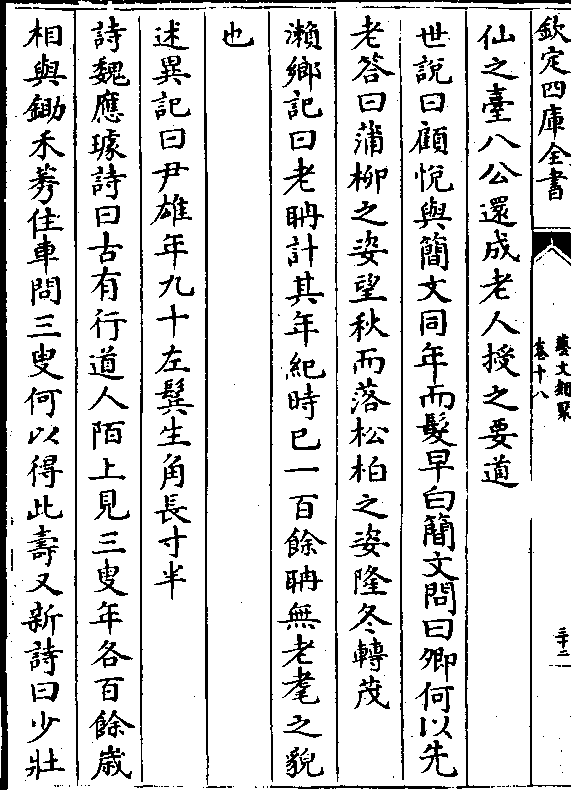 欽定四庫全書
藝文類聚
卷十八
三十二
仙之臺八公還成老人授之要道
世說曰顧悅與簡文同年而髮早白簡文問曰卿何以先
老答曰蒲柳之姿望秋而落松柏之姿隆冬轉茂
瀨鄉記曰老聃計其年紀時已一百餘聃無老耄之貌
也
述異記曰尹雄年九十左鬓生角長寸半
詩魏應璩詩曰古有行道人陌上見三叟年各百餘歲
相與鋤禾莠住車問三叟何以得此壽又新詩曰少壯